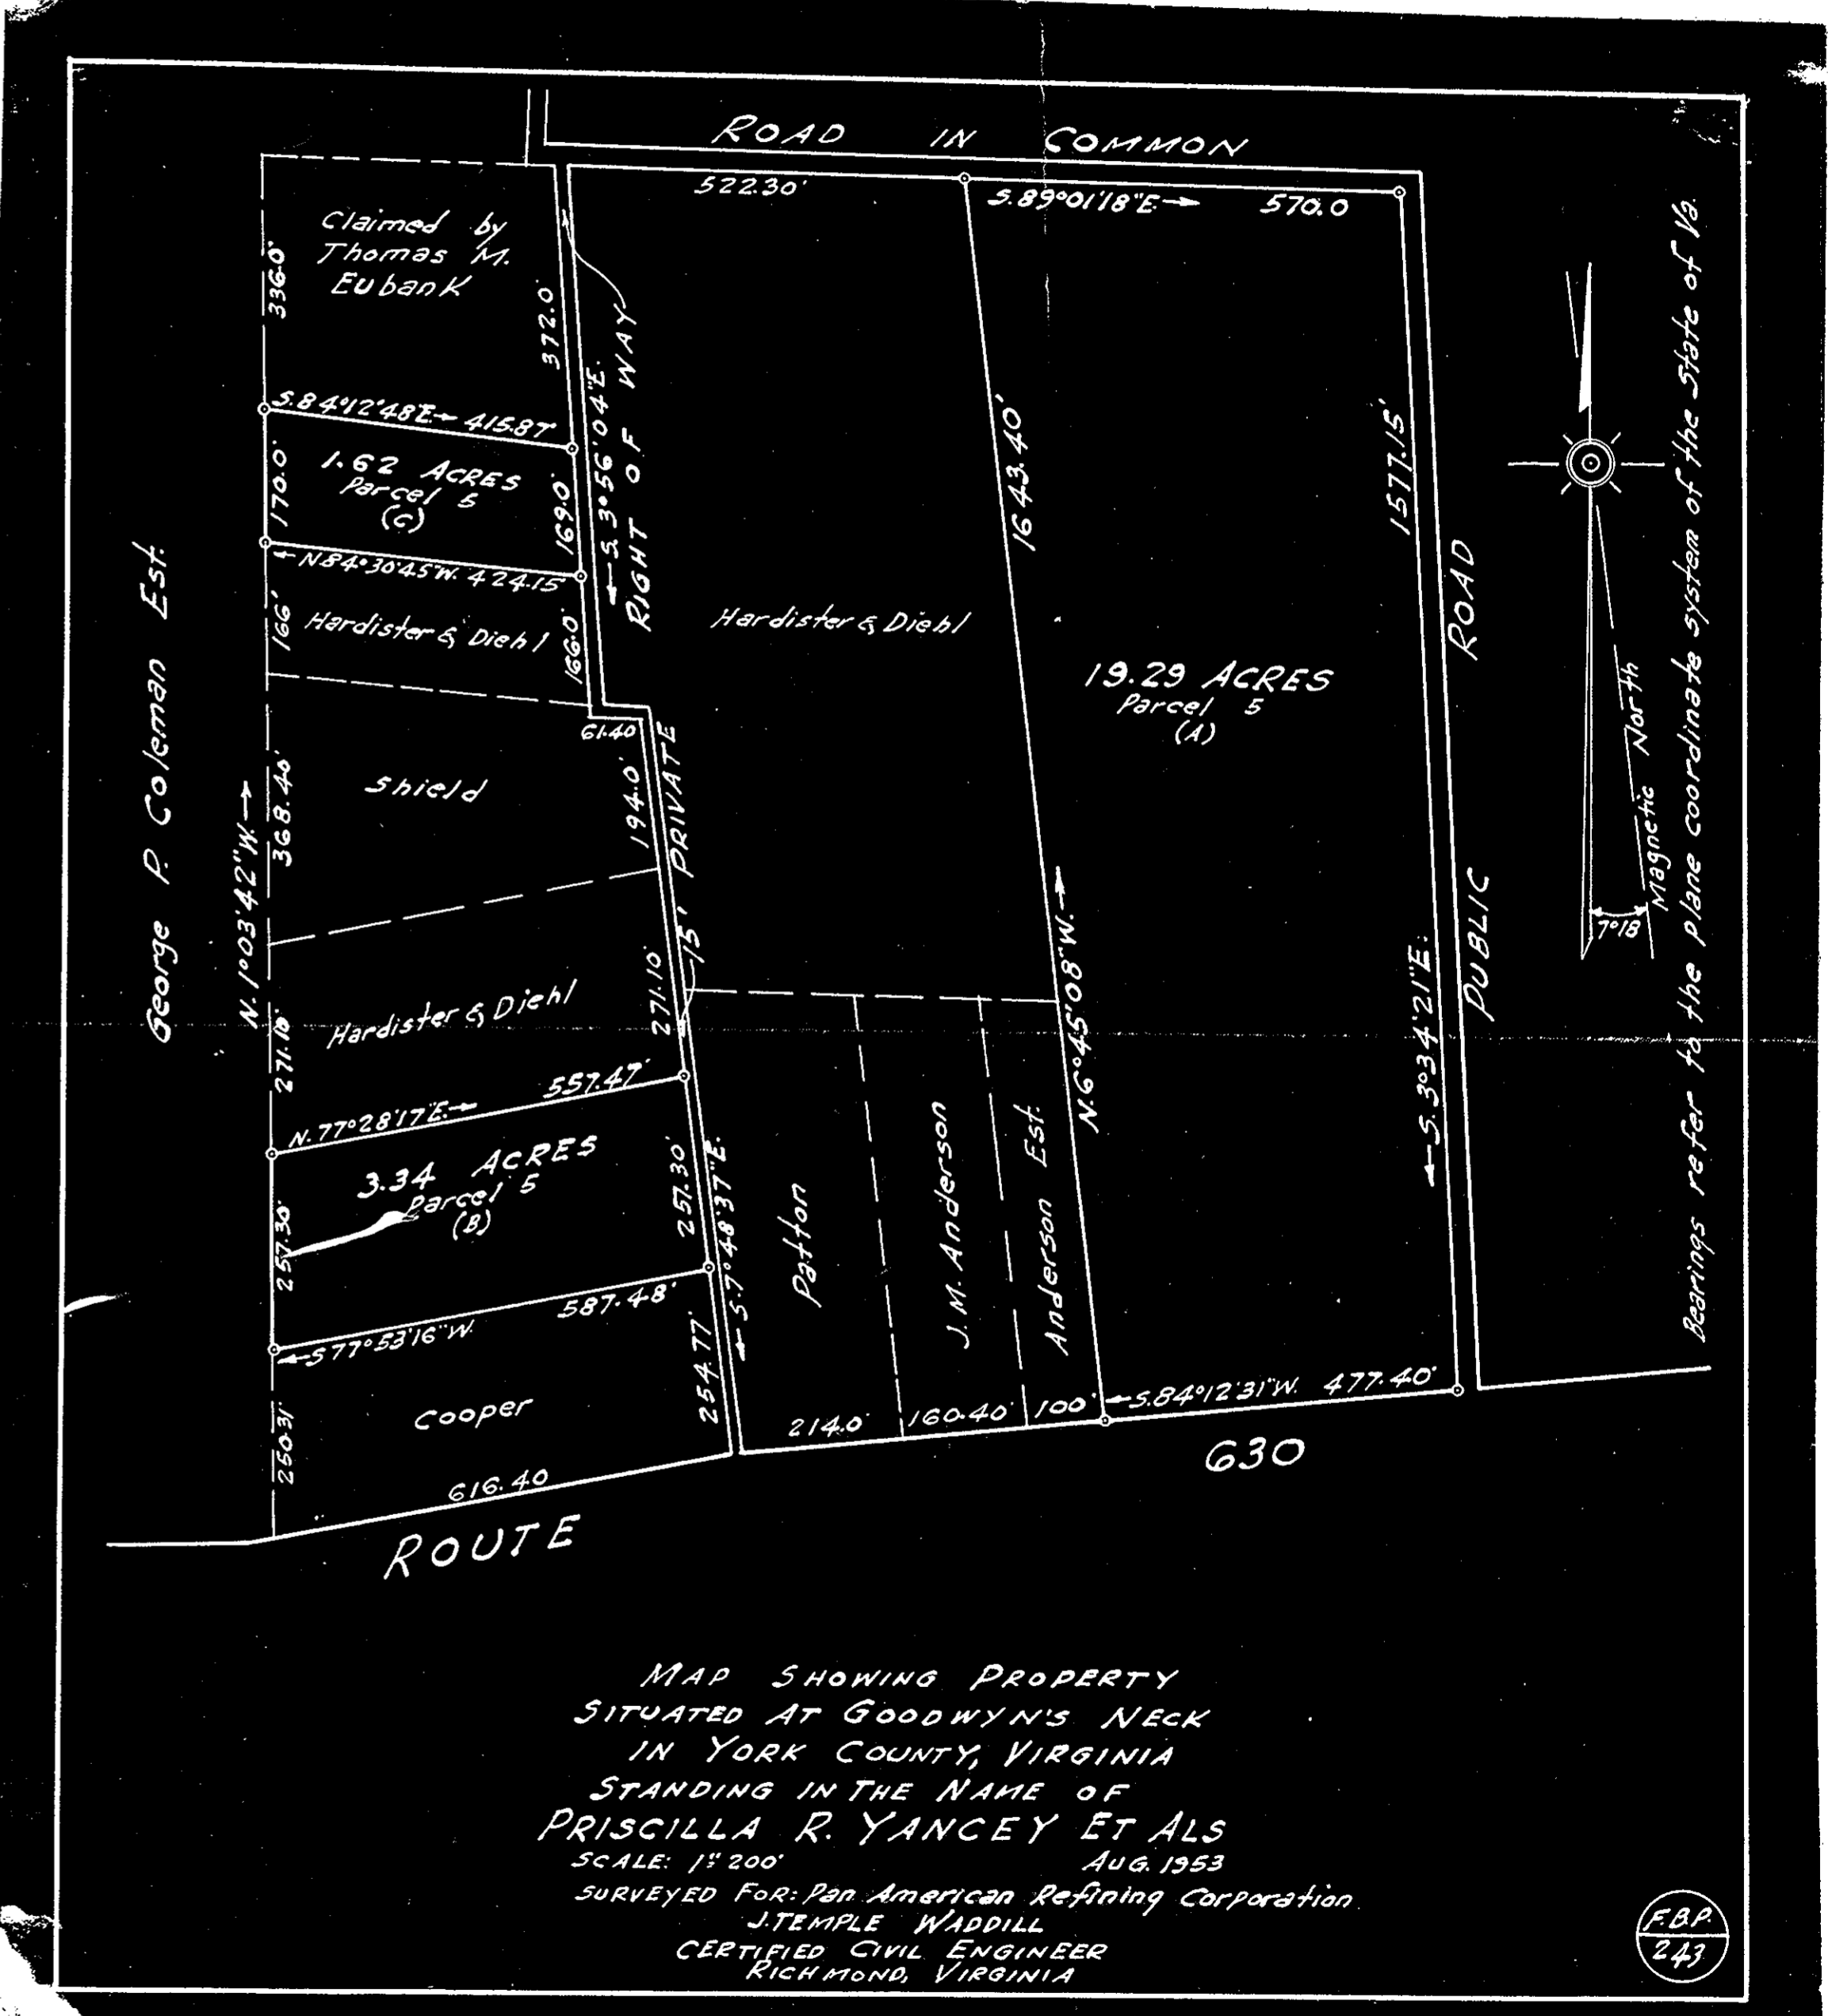 ROAD IN COMMON
522.30'
S.89°01'18"E.
570.0
Claimed by
Thomas M.
Eubank
336.0'
372.0'
S.3°56'04"E.
RIGHT OF WAY
S.84°12'48"E. 415.87'
1.62 ACRES
Parcel 5
(C)
170.0'
169.0'
N.84°30'45"W. 424.15'
Hardister & Diehl
166'
166.0'
61.40'
Hardister & Diehl
1643.40'
1577.15'
19.29 ACRES
Parcel 5
(A)
PUBLIC ROAD
George P. Coleman Est.
N.1°03'42"W.
Shield
368.40'
194.0'
15' PRIVATE
Hardister & Diehl
271.10'
271.10'
N.77°28'17"E.
557.47'
3.34 ACRES
Parcel 5
(B)
257.30'
257.30'
S.7°48'37"E.
S.77°53'16"W.
587.48'
Cooper
250.31'
254.77'
616.40
Patton
J.M. Anderson
Anderson Est.
N.6°45'08"W.
S.3°34'21"E.
214.0'
160.40'
100'
S.84°12'31"W. 477.40'
ROUTE
630
Magnetic North
7°18'
Bearings refer to the plane coordinate system of the State of Va.
MAP SHOWING PROPERTY
SITUATED AT GOODWYN'S NECK
IN YORK COUNTY, VIRGINIA
STANDING IN THE NAME OF
PRISCILLA R. YANCEY ET ALS
SCALE: 1"=200' AUG. 1953
SURVEYED FOR: Pan American Refining Corporation.
J. TEMPLE WADDILL
CERTIFIED CIVIL ENGINEER
RICHMOND, VIRGINIA
F.B.P.
243